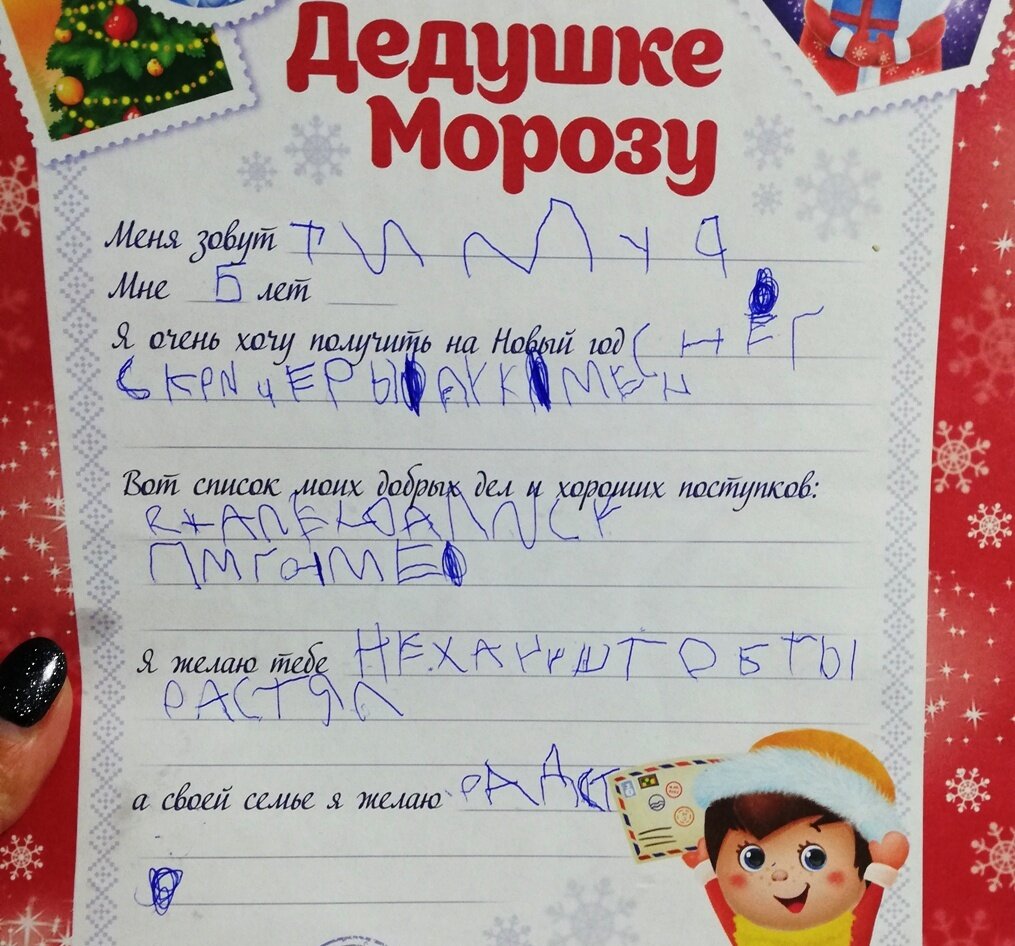 Дедушке
Морозу
Меня зовут ТИМУР
Мне Б лет
Я очень хочу получить на Новый год СНЕГ
МЕН
Вот список моих добрых дел и хороших поступков:
ПМГАМЕ
Я желаю тебе НЕХАЧУШТОБТЫ
РАСТЯЛ
а своей семье я желаю РАДСТ